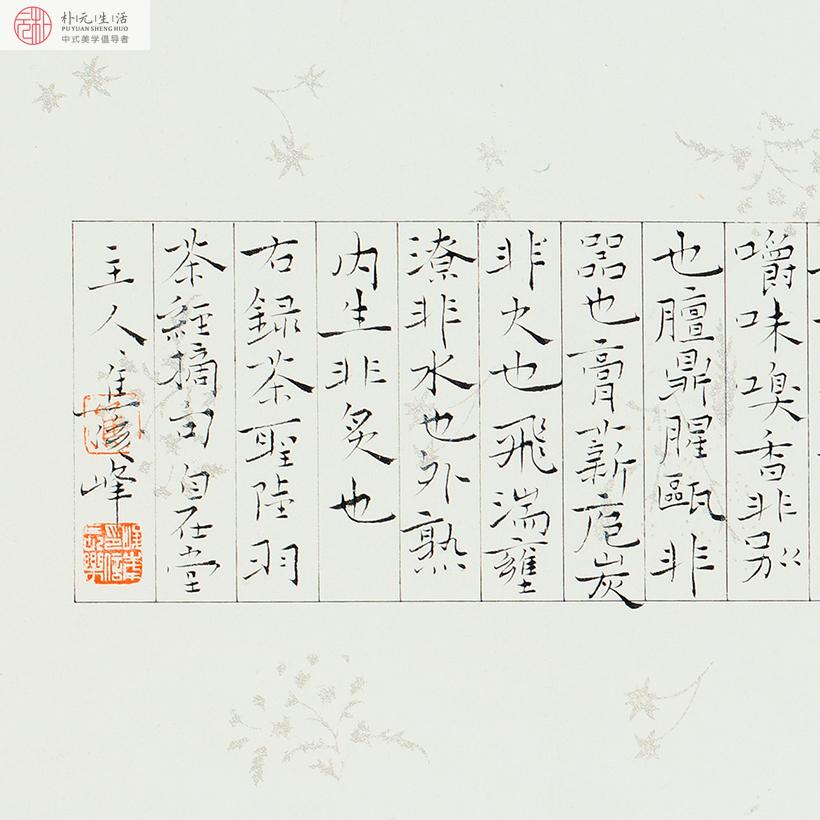 朴元生活
PUYUAN SHENG HUO
中式美学倡导者
嚼味嗅香非别〻
也膻鼎腥甌非
器也膏薪庖炭
非火也飛湍壅
潦非水也外熟
内生非炙也
右録茶聖陸羽
茶經摘句自在堂
主人崔護峰